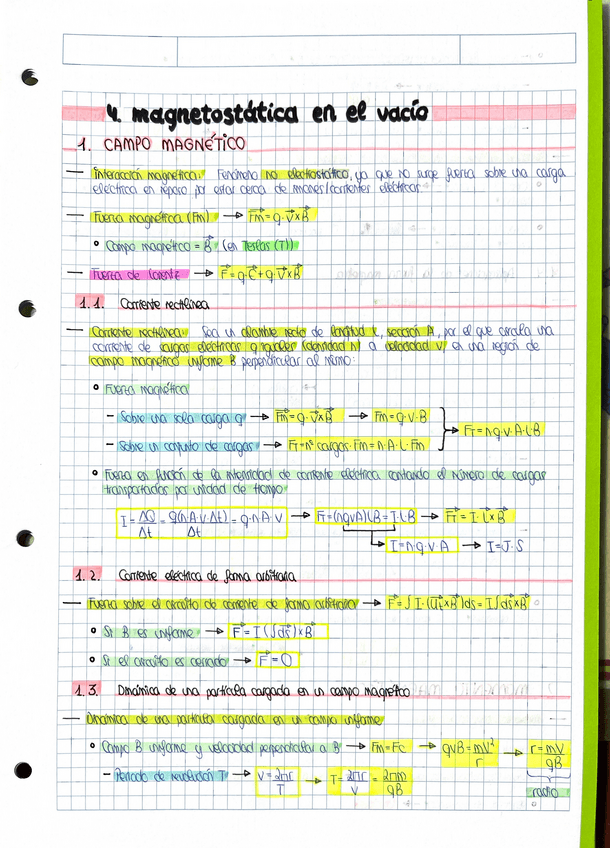 4. magnetostática en el vacío
1. CAMPO MAGNÉTICO
— Interacción magnética: Fenómeno no electrostático, ya que no surge fuerza sobre una carga
eléctrica en reposo por estar cerca de imanes/corrientes eléctricas.
— Fuerza magnética (Fm) → F⃗m = q·v⃗×B⃗
• Campo magnético = B⃗ (en Teslas (T))
— Fuerza de Lorentz → F⃗ = q·E⃗ + q·v⃗×B⃗
1.1. Corriente rectilínea
— Corriente rectilínea: Sea un alambre recto de longitud L, sección A, por el que circula una
corriente de cargas eléctricas q iguales (densidad n) a velocidad v, en una región de
campo magnético uniforme B perpendicular al mismo:
• Fuerza magnética
- Sobre una sola carga q → F⃗m = q·v⃗×B⃗ → Fm = q·v·B
- Sobre un conjunto de cargas → FT = nº cargas·Fm = n·A·L·Fm
FT = n·q·v·A·L·B
• Fuerza en función de la intensidad de corriente eléctrica contando el número de cargas
transportadas por unidad de tiempo
I = ΔQ/Δt = q(n·A·v·Δt)/Δt = q·n·A·v → FT = (nqvA)LB = I·L·B → F⃗T = I·L⃗×B⃗
→ I = n·q·v·A → I = J·S
1.2. Corriente eléctrica de forma arbitraria
— Fuerza sobre el circuito de corriente de forma arbitraria → F⃗ = ∫ I·(u⃗t×B⃗)ds = I∫ds⃗×B⃗
• Si B es uniforme → F⃗ = I(∫ds⃗)×B⃗
• Si el circuito es cerrado → F⃗ = 0
1.3. Dinámica de una partícula cargada en un campo magnético
— Dinámica de una partícula cargada en un campo uniforme
• Campo B uniforme y velocidad perpendicular a B → Fm = Fc → qvB = mv²/r → r = mv/qB
- Periodo de revolución T → v = 2πr/T → T = 2πr/v = 2πm/qB
radio